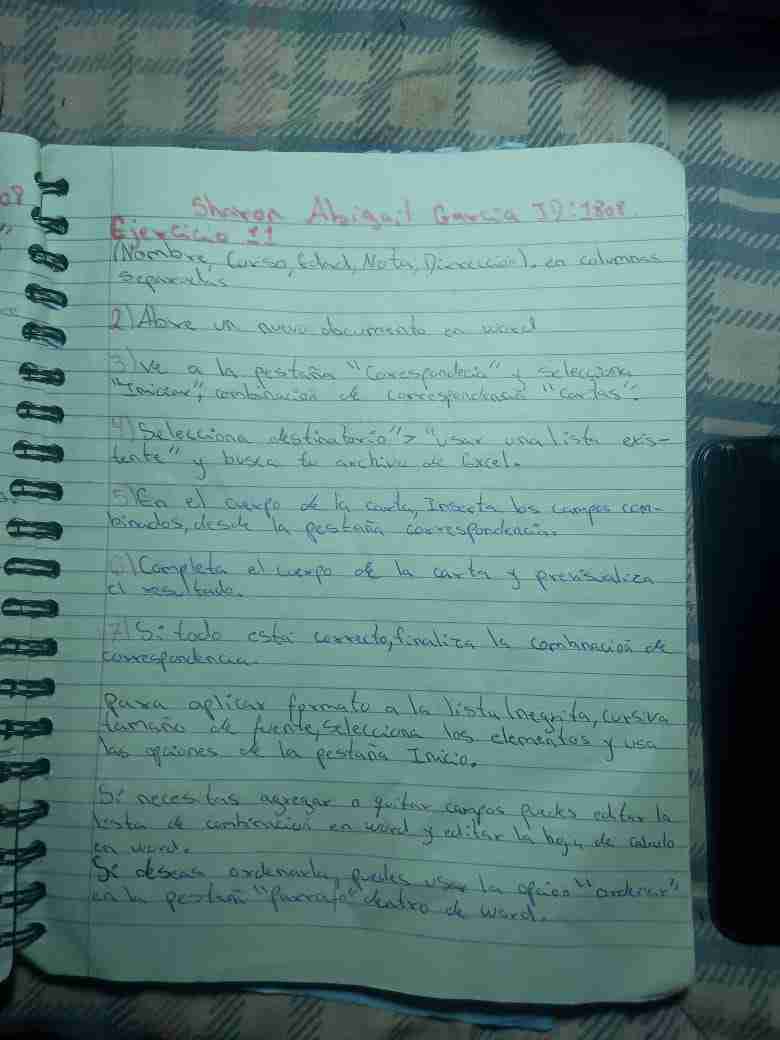 Sharon Abigail Garcia ID:1808.
Ejercicio 11
(Nombre, Curso, Edad, Nota, Dirección). en columnas
separadas
2) Abre un nuevo documento en word
3) Ve a la pestaña "Corespondecia" y selecciona
"Iniciar", combinacion de correspondencia "Cartas".
4) Selecciona destinatario" > "usar una lista exis-
tente" y busca tu archivo de Excel.
5) En el cuerpo de la carta, Inserta los campos com-
binados, desde la pestaña correspondencia.
6) Completa el cuerpo de la carta y previsualiza
el resultado.
7) Si todo esta correcto, finaliza la combinacion de
correspondencia.
para aplicar formato a la lista (negrita, cursiva
tamaño de fuente, selecciona los elementos y usa
las opciones de la pestaña Inicio.
Si necesitas agregar o quitar campos puedes editar la
lista de combinacion en word y editar la hoja de calculo
en word.
Si deseas ordenarla, puedes usar la opcion "ordenar"
en la pestañ "Parrafo" dentro de word.
08